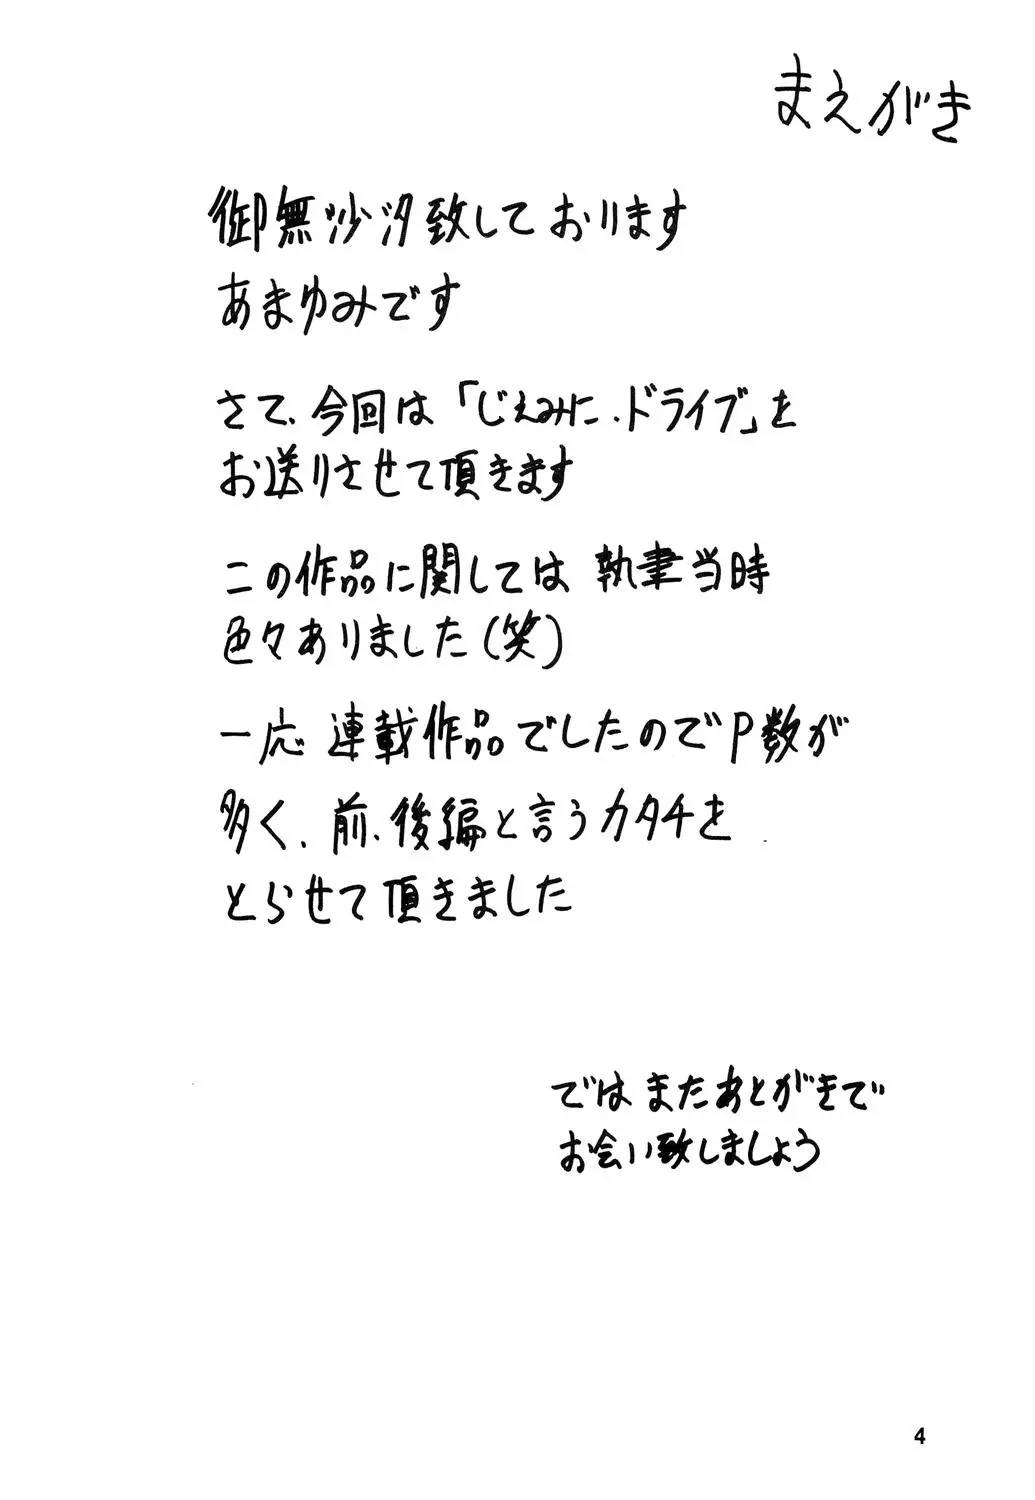 まえがき
御無沙汐致しております
あまゆみです
さて、今回は「じぇみに.ドライブ」を
お送りさせて頂きます
この作品に関しては 執筆当時
色々ありました(笑)
一応 連載作品でしたのでP数が
多く、前、後編と言うカタチを
とらせて頂きました
では またあとがきで
お会い致しましょう
4